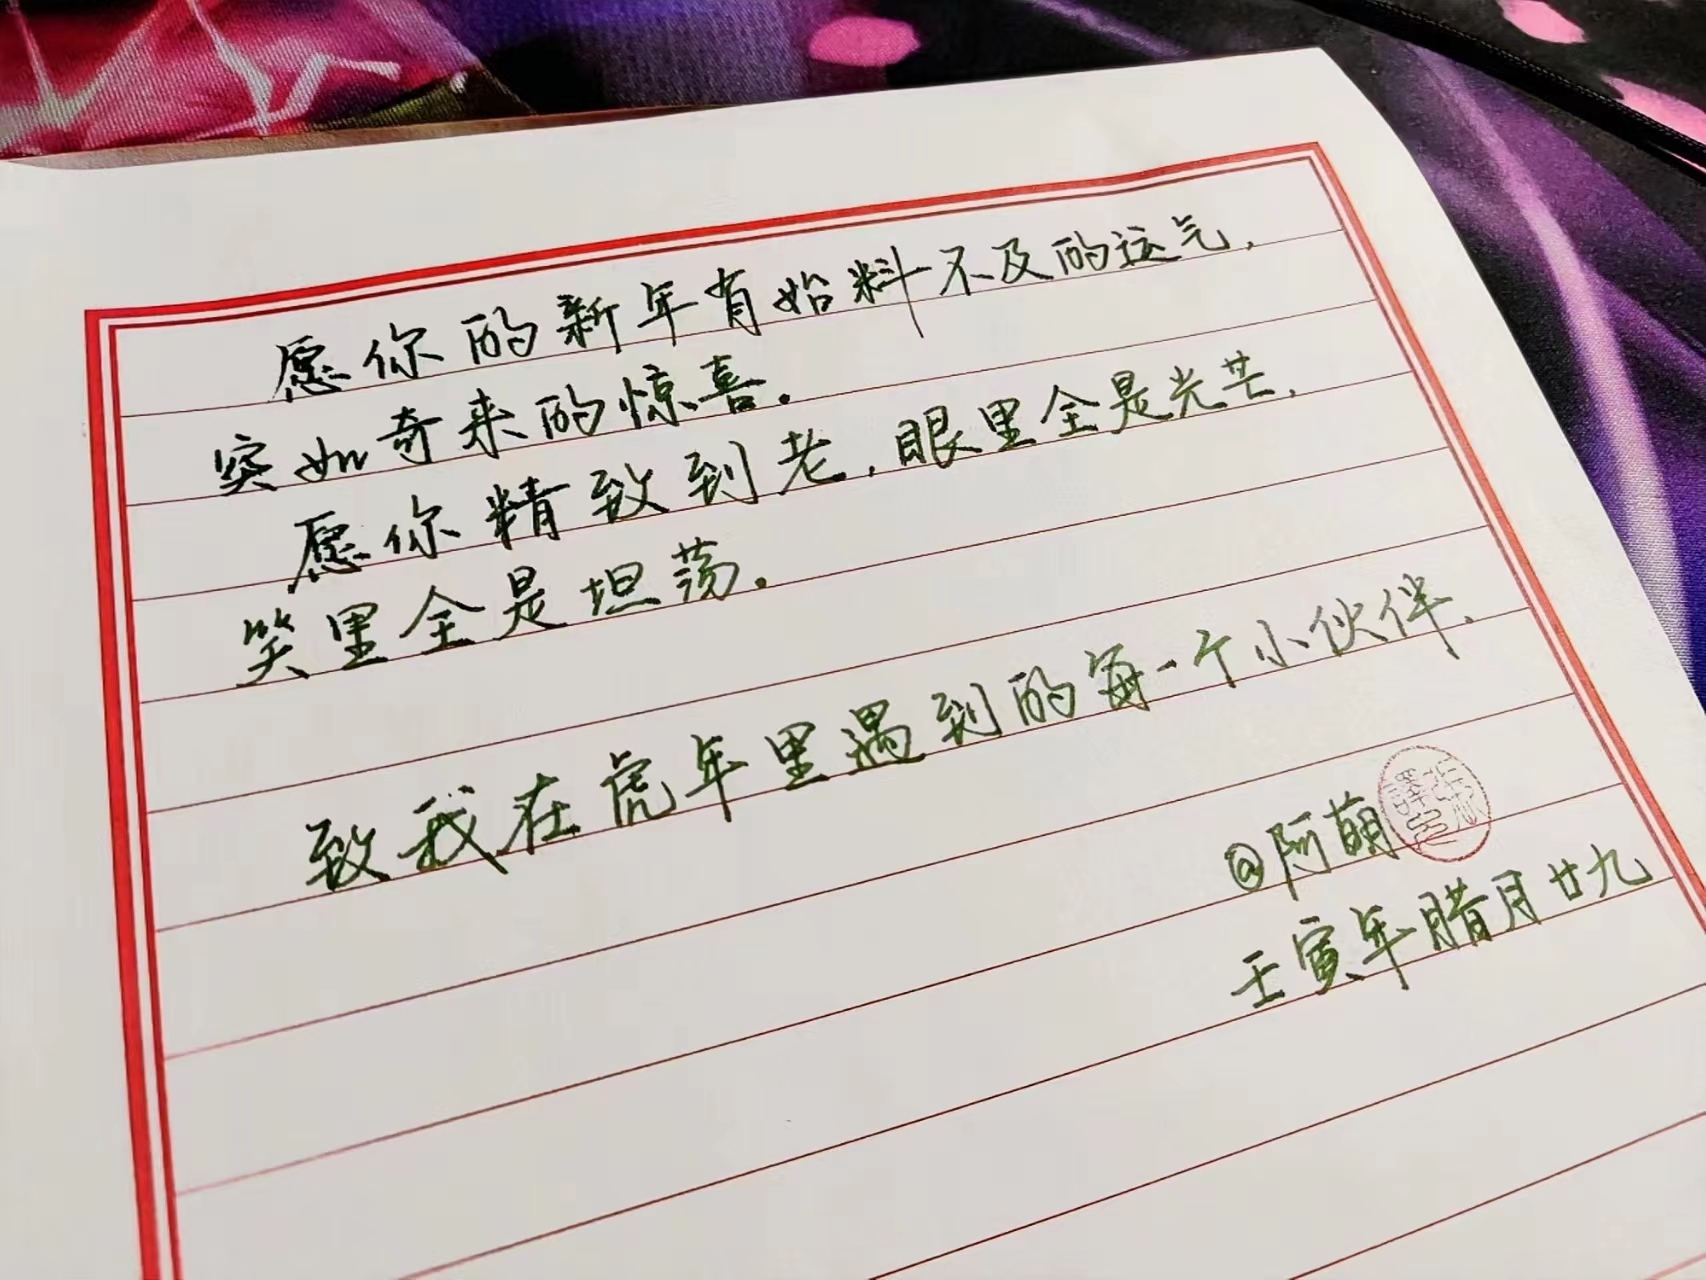 愿你的新年有始料不及的运气,
突如奇来的惊喜.
愿你精致到老,眼里全是光芒,
笑里全是坦荡.
致我在虎年里遇到的每一个小伙伴.
@阿萌
壬寅年腊月廿九